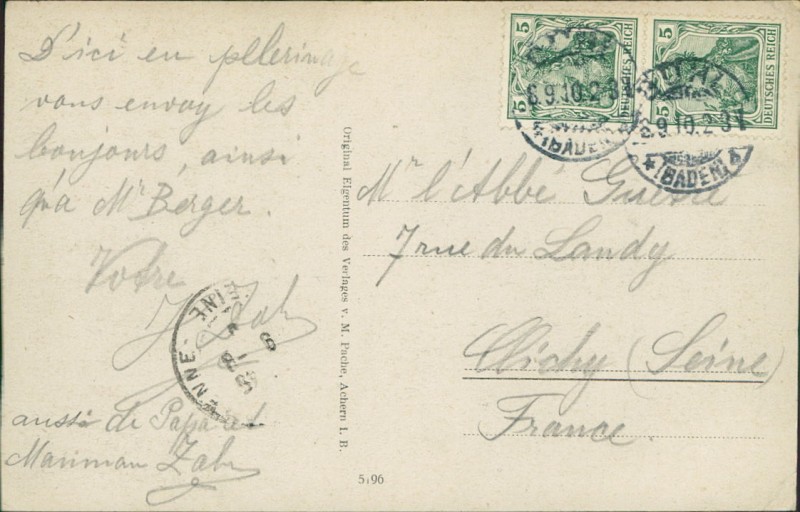 D'ici en pellerinage
vous envoy les
bonjours, ainsi
qu'a Mr Berger.
Votre
J. Zahn
aussi de Papa et
Mamman Zahn
Original Eigentum des Verlages v. M. Pache, Achern i. B.
5196
5 5 DEUTSCHES REICH
5 5 DEUTSCHES REICH
6.9.10.2-3
(BADEN)
6.9.10.2-3
(BADEN)
Mr l'Abbé
7 rue du Landy
Clichy (Seine)
France.